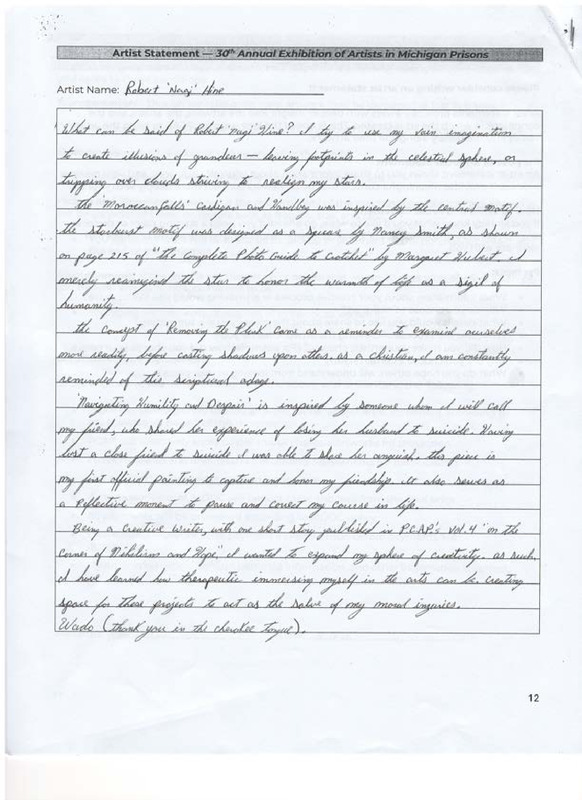 Artist Statement — 30th Annual Exhibition of Artists in Michigan Prisons
Artist Name: Robert 'Nagi' Hine
What can be said of Robert 'Nagi' Hine? I try to use my vain imagination
to create illusions of grandeur — leaving footprints in the celestial sphere, or
tripping over clouds striving to realign my stars.
the 'Moroccan falls' Cardigan and Handbag was inspired by the central motif.
the starburst motif was designed as a square by Nancy Smith, as shown
on page 215 of "the Complete Photo Guide to Crochet" by Margaret Hubert. I
merely reimagined the star to honor the warmth of life as a sigil of
humanity.
the concept of 'Removing the Plank' came as a reminder to examine ourselves
more readily, before casting shadows upon others. as a christian, I am constantly
reminded of this scriptural adage.
'Navigating Humility and Despair' is inspired by someone whom I will call
my friend, who shared her experience of losing her husband to suicide. Having
lost a close friend to suicide I was able to share her anguish. this piece is
my first official painting to capture and honor my friendship. It also serves as
a reflective moment to pause and correct my course in life.
Being a Creative Writer, with one short story published in P.C.A.P.'s Vol. 4 "on the
Corner of Nihilism and Hope," I wanted to expand my sphere of creativity. as such,
I have learned how therapeutic immersing myself in the arts can be. creating
space for these projects to act as the salve of my moral injuries.
Wado (thank you in the cherokee tongue).
12